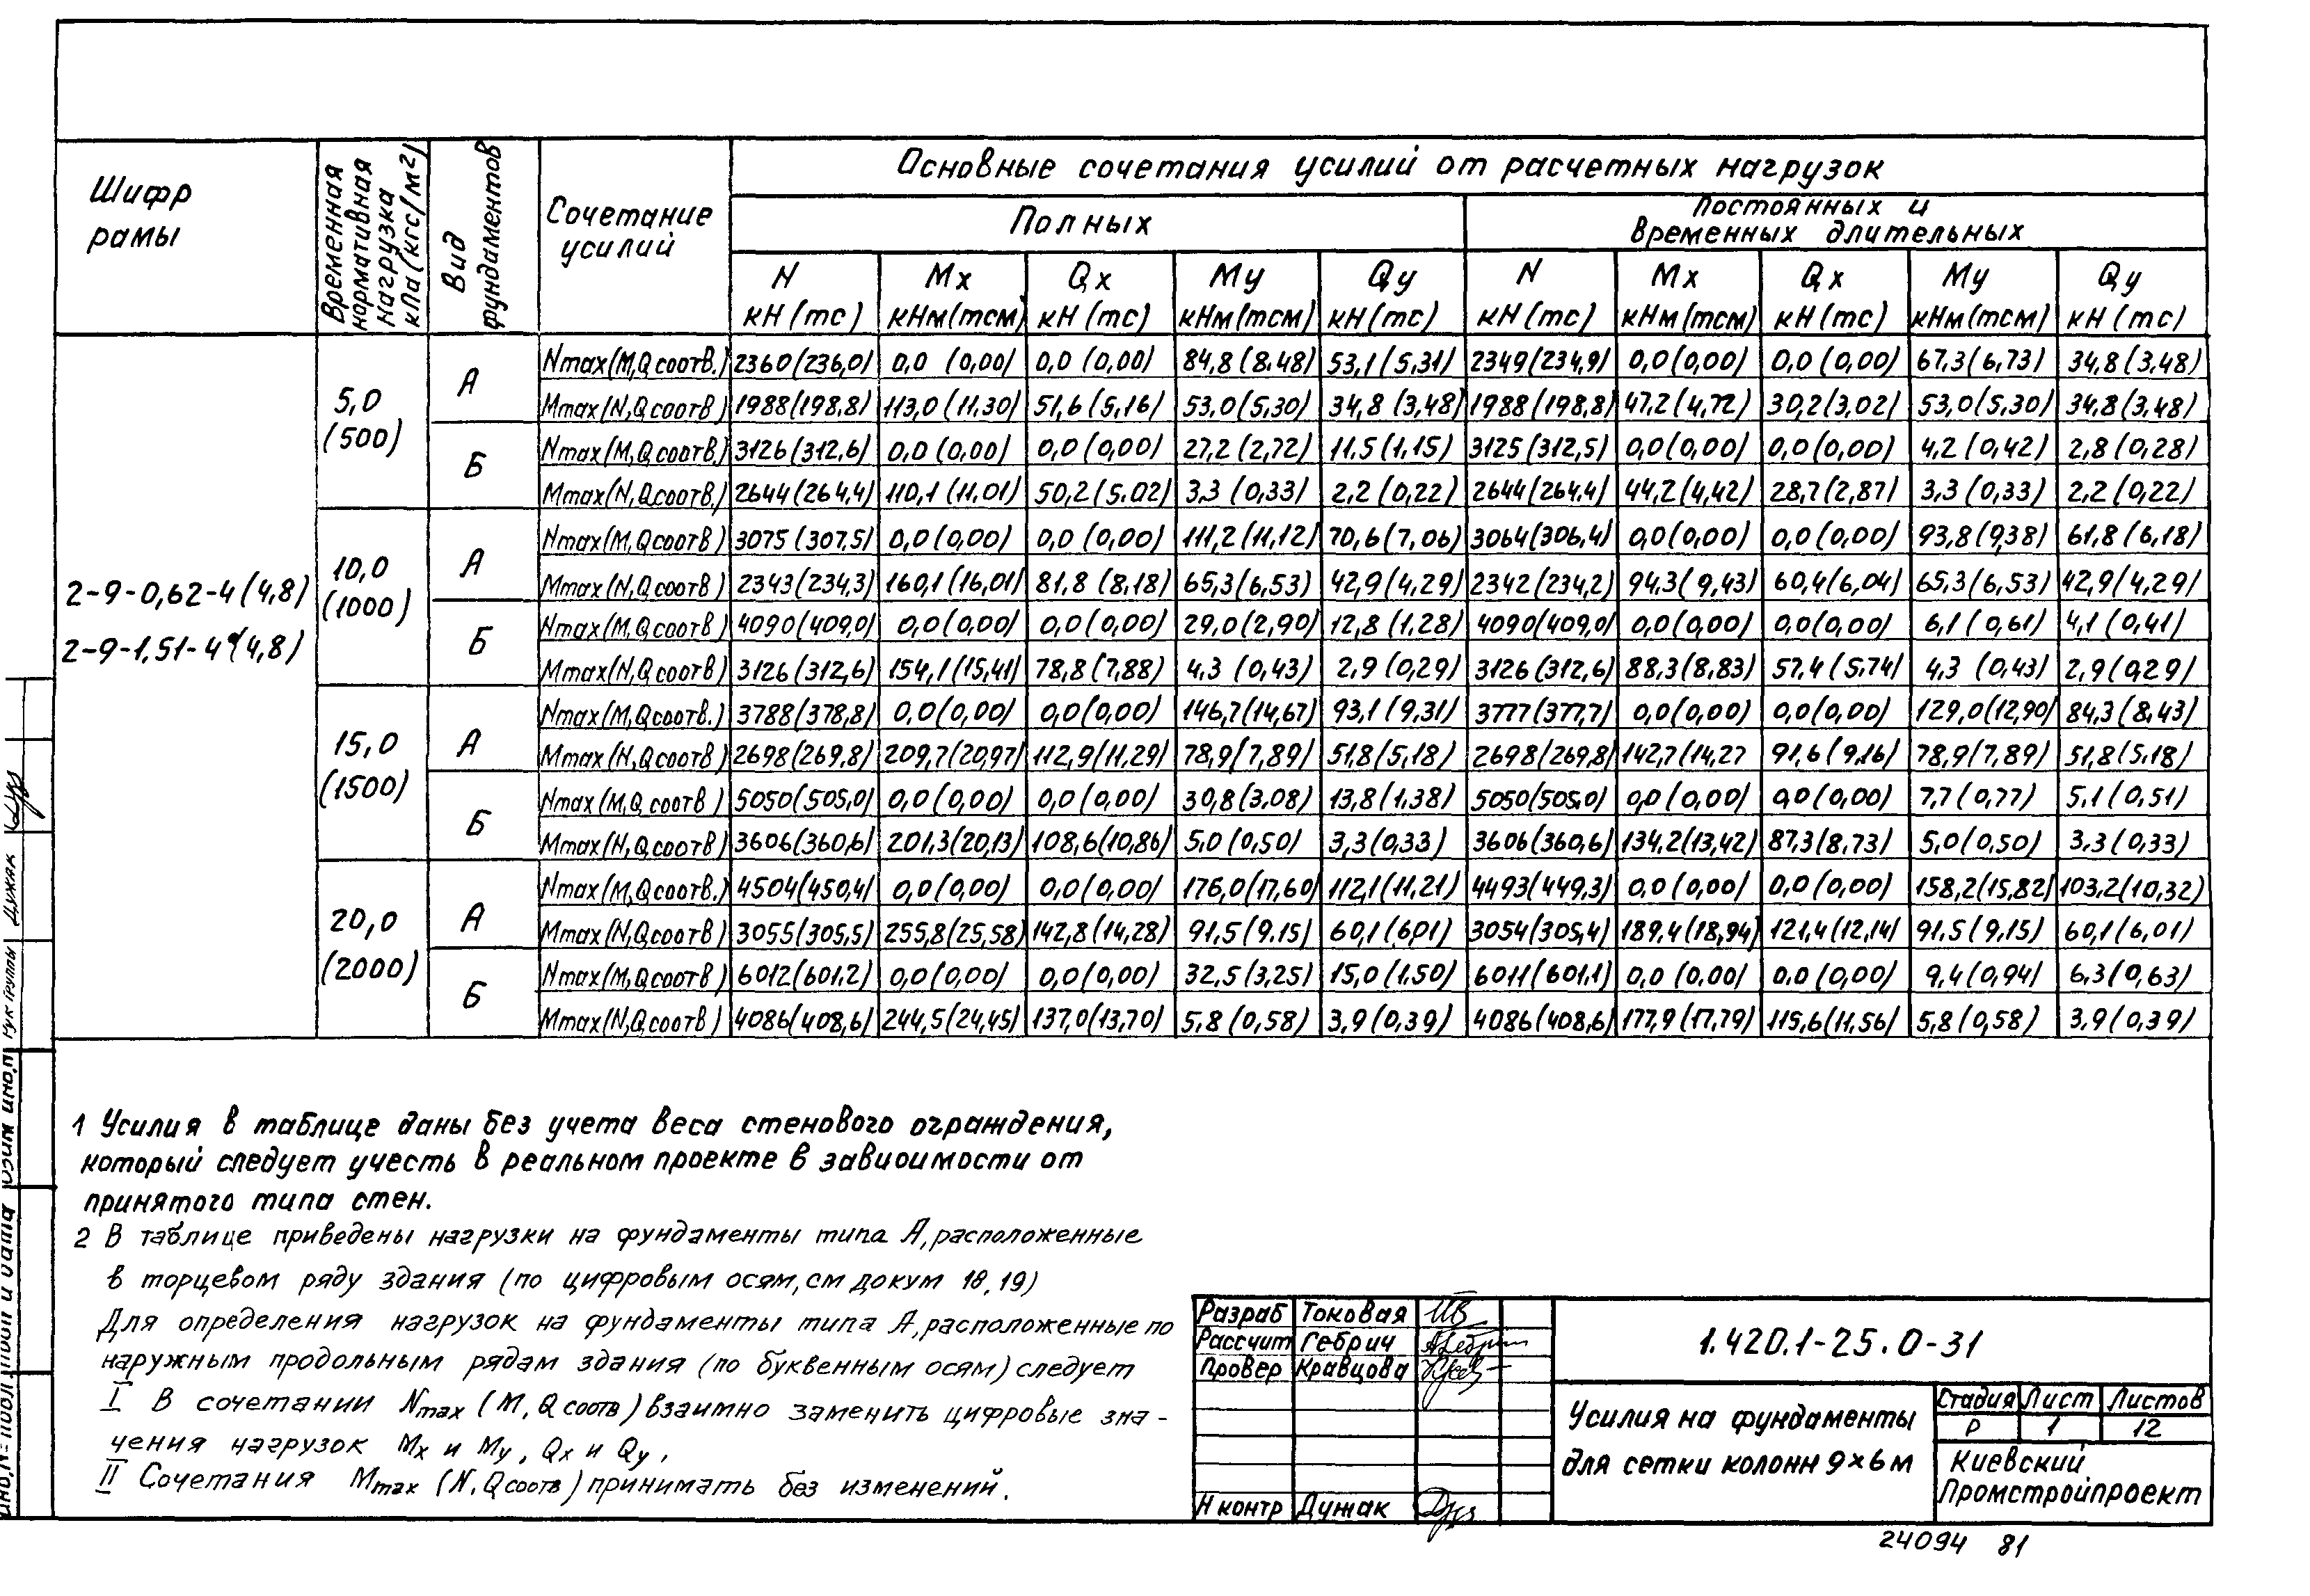 Шифр рамы
Временная нормативная нагрузка кПа (кгс/м²)
Вид фундаментов
Сочетание усилий
Основные сочетания усилий от расчетных нагрузок
Полных
Постоянных и временных длительных
N кН (тс) Mx кНм (тсм) Qx кН (тс) My кНм (тсм) Qy кН (тс) N кН (тс) Mx кНм (тсм) Qx кН (тс) My кНм (тсм) Qy кН (тс)
2-9-0,62-4 (4,8)
2-9-1.51-4 (4,8)
5,0 (500)
А
Nmax (M, Q соотв.) 2360 (236,0) 0,0 (0,00) 0,0 (0,00) 84,8 (8.48) 53,1 (5,31) 2349 (234,9) 0,0 (0,00) 0,0 (0,00) 67,3 (6,73) 34,8 (3,48)
Mmax (N, Q соотв) 1988 (198,8) 113,0 (11,30) 51,6 (5,16) 53,0 (5,30) 34,8 (3,48) 1988 (198,8) 47,2 (4,72) 30,2 (3,02) 53,0 (5,30) 34,8 (3,48)
Б
Nmax (M, Q соотв.) 3126 (312,6) 0,0 (0,00) 0,0 (0,00) 27,2 (2,72) 11,5 (1,15) 3125 (312,5) 0,0 (0,00) 0,0 (0,00) 4,2 (0,42) 2,8 (0,28)
Mmax (N, Q соотв.) 2644 (264,4) 110,1 (11.01) 50,2 (5.02) 3,3 (0,33) 2,2 (0,22) 2644 (264,4) 44,2 (4,42) 28,7 (2,87) 3,3 (0,33) 2,2 (0,22)
10,0 (1000)
А
Nmax (M, Q соотв) 3075 (307,5) 0,0 (0,00) 0,0 (0,00) 111,2 (11,12) 70,6 (7,06) 3064 (306,4) 0,0 (0,00) 0,0 (0,00) 93,8 (9,38) 61,8 (6,18)
Mmax (N, Q соотв) 2343 (234,3) 160,1 (16,01) 81,8 (8,18) 65,3 (6,53) 42,9 (4,29) 2342 (234,2) 94,3 (9,43) 60,4 (6,04) 65,3 (6,53) 42,9 (4,29)
Б
Nmax (M, Q соотв) 4090 (409,0) 0,0 (0,00) 0,0 (0,00) 29,0 (2,90) 12,8 (1.28) 4090 (409,0) 0,0 (0,00) 0,0 (0,00) 6,1 (0,61) 4,1 (0,41)
Mmax (N, Q соотв) 3126 (312,6) 154,1 (15,41) 78,8 (7,88) 4,3 (0,43) 2,9 (0,29) 3126 (312,6) 88,3 (8,83) 57,4 (5,74) 4,3 (0,43) 2,9 (0,29)
15,0 (1500)
А
Nmax (M, Q соотв.) 3788 (378,8) 0,0 (0,00) 0,0 (0,00) 146,7 (14,67) 93,1 (9,31) 3777 (377,7) 0,0 (0,00) 0,0 (0,00) 129,0 (12,90) 84,3 (8,43)
Mmax (N, Q соотв) 2698 (269,8) 209,7 (20,97) 112,9 (11,29) 78,9 (7,89) 51,8 (5,18) 2698 (269,8) 142,7 (14,27 91,6 (9,16) 78,9 (7,89) 51,8 (5,18)
Б
Nmax (M, Q соотв) 5050 (505,0) 0,0 (0,00) 0,0 (0,00) 30,8 (3,08) 13,8 (1,38) 5050 (505,0) 0,0 (0,00) 0,0 (0,00) 7,7 (0,77) 5,1 (0,51)
Mmax (N, Q соотв) 3606 (360,6) 201,3 (20,13) 108,6 (10,86) 5,0 (0,50) 3,3 (0,33) 3606 (360,6) 134,2 (13,42) 87,3 (8,73) 5,0 (0,50) 3,3 (0,33)
20,0 (2000)
А
Nmax (M, Q соотв.) 4504 (450,4) 0,0 (0,00) 0,0 (0,00) 176,0 (17,60) 112,1 (11,21) 4493 (449,3) 0,0 (0,00) 0,0 (0,00) 158,2 (15,82) 103,2 (10,32)
Mmax (N, Q соотв) 3055 (305,5) 255,8 (25,58) 142,8 (14,28) 91,5 (9.15) 60,1 (6,01) 3054 (305,4) 189,4 (18,94) 121,4 (12,14) 91,5 (9,15) 60,1 (6,01)
Б
Nmax (M, Q соотв) 6012 (601,2) 0,0 (0,00) 0,0 (0,00) 32,5 (3,25) 15,0 (1.50) 6011 (601,1) 0,0 (0.00) 0,0 (0,00) 9,4 (0,94) 6,3 (0,63)
Mmax (N, Q соотв) 4086 (408,6) 244,5 (24,45) 137,0 (13,70) 5,8 (0,58) 3,9 (0,39) 4086 (408,6) 177,9 (17,79) 115,6 (11,56) 5,8 (0,58) 3,9 (0,39)
1 Усилия в таблице даны без учета веса стенового ограждения,
который следует учесть в реальном проекте в зависимости от
принятого типа стен.
2 В таблице приведены нагрузки на фундаменты типа А, расположенные
в торцевом ряду здания (по цифровым осям, см докум 18, 19)
Для определения нагрузок на фундаменты типа А, расположенные по
наружным продольным рядам здания (по буквенным осям) следует
I В сочетании Nmax (M, Q соотв) взаимно заменить цифровые зна-
чения нагрузок Mx и My, Qx и Qy,
II Сочетания Mmax (N, Q соотв) принимать без изменений.
Разраб Токовая
Рассчит Гебрич
Провер Кравцова
Н контр Дужак
1.420.1-25.0-31
Усилия на фундаменты
для сетки колонн 9×6 м
Стадия Лист Листов
Р 1 12
Киевский
Промстройпроект
24094 81
Рук группы Дужак